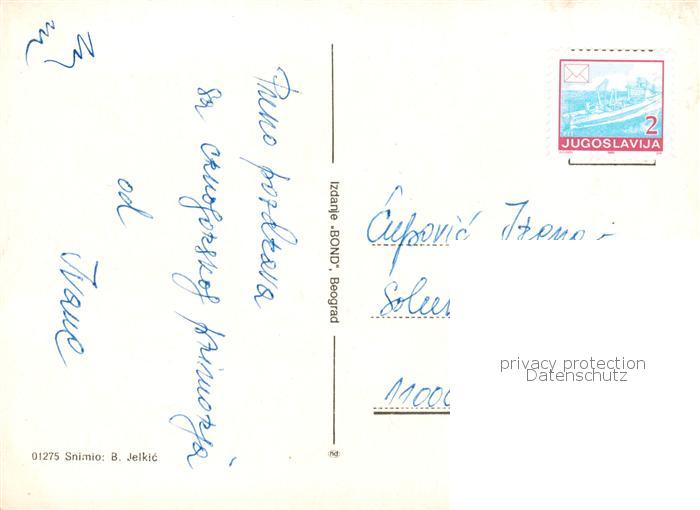 Puno pozdrava
sa crnogorskog primorja
od
Ivane
Izdanje „BOND", Beograd
01275 Snimio: B. Jelkić
2
JUGOSLAVIJA
Čupović
11000
privacy protection
Datenschutz